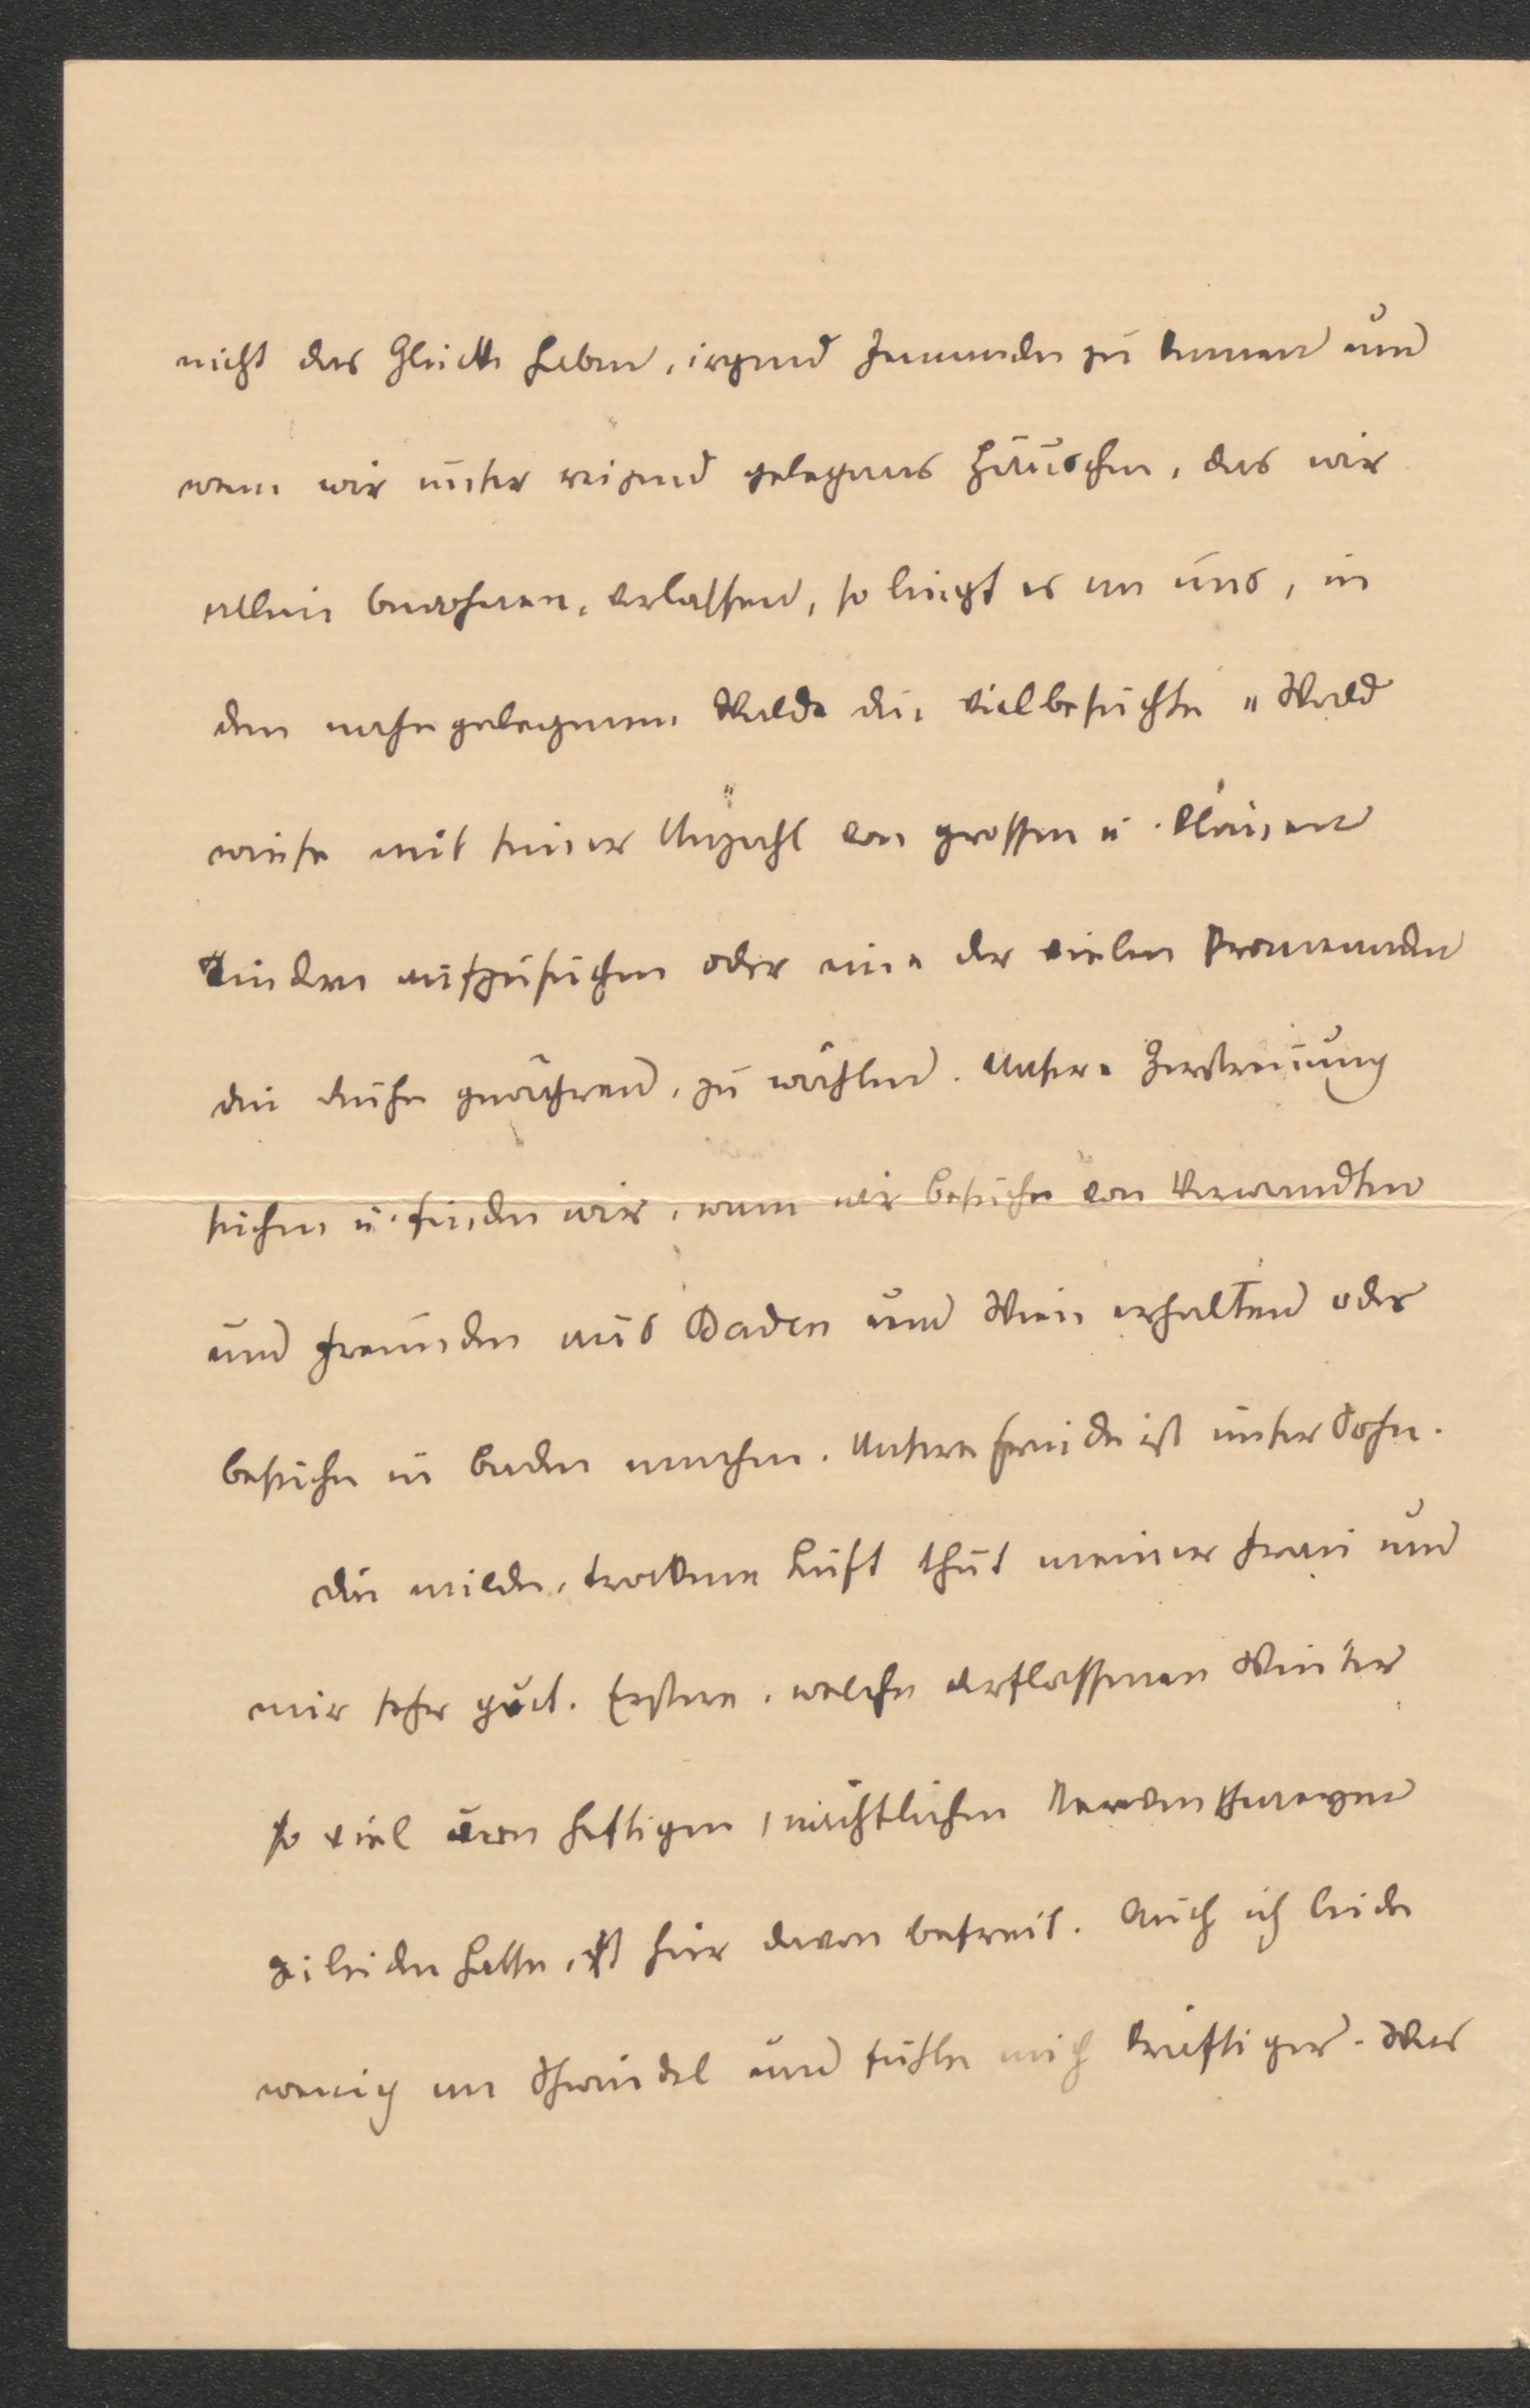 nicht das Glück haben, irgend Jemanden zu kennen und
wenn wir unser reizend gelegenes Häuschen, das wir
allein bewohnen, verlassen, so liegt es an uns, in
dem nahe gelegenen Walde die vielbesuchte „Wald
wiese" mit seiner Unzahl von grossen u. kleinen
Kindern aufzusuchen oder eine der vielen Promenaden
die Ruhe gewähren, zu wählen. Unsere Zerstreuung
suchen u. finden wir, wenn wir Besuche von Verwandten
und Freunden aus Baden und Wien erhalten oder
Besuche in Baden machen. Unsere Freude ist unser Sohn.
Die milde, trockene Luft thut meiner Frau und
mir sehr gut. Erstere, welche verflossenen Winter
so viel von heftigen, nächtlichen Nerven
zu leiden hatte, ist hier davon befreit. Auch ich leide
wenig an Schwindel und fühle mich kräftiger. Was